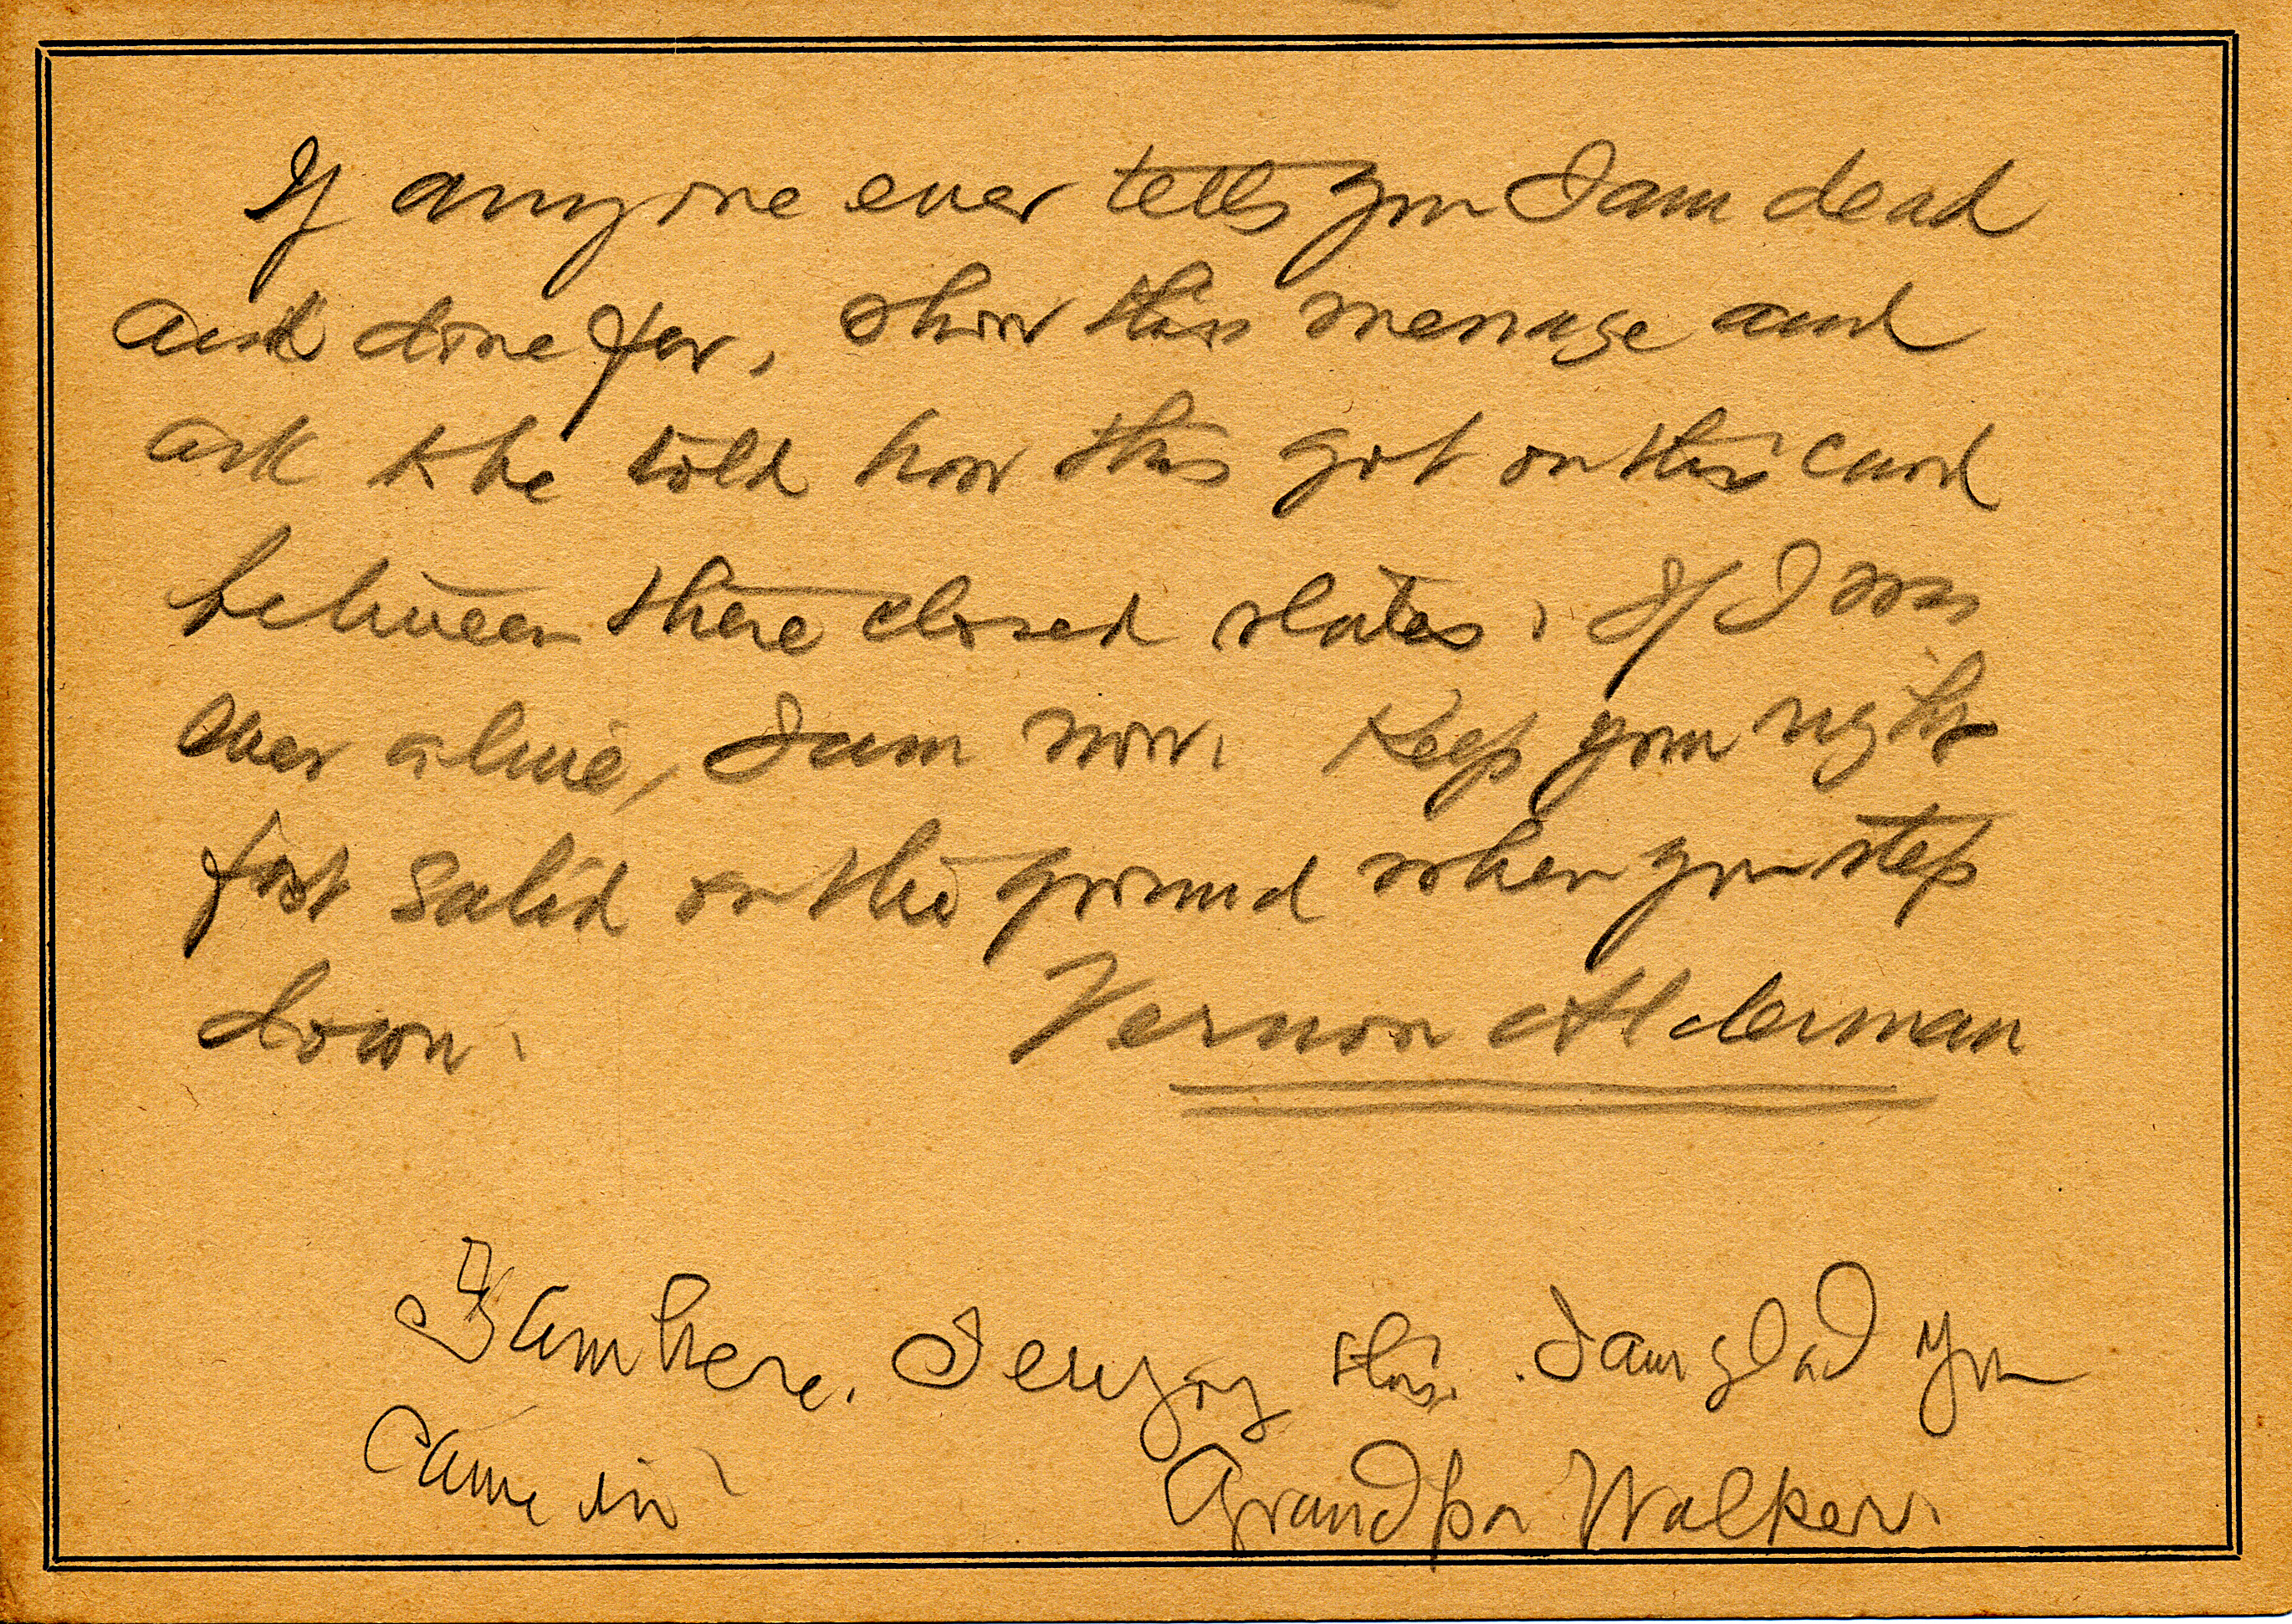 If anyone ever tells you I am dead
and done for, show this message and
ask to be told how this got on this card
between these closed slates. If I was
ever alive, I am now. Keep your right
foot solid on the ground when you step
down.
Vernon Alderman
I am here. I enjoy this. I am glad you
came in
Grandpa Walker.